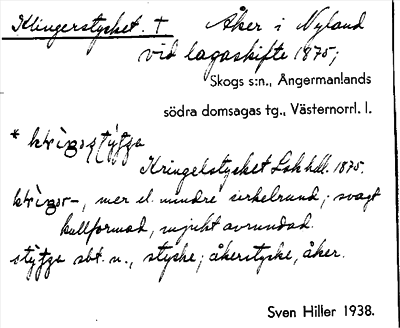 Klingerstycket. † Åker i Nyland
vid lagaskifte 1875;
Skogs s:n., Ångermanlands
södra domsagas tg., Västernorrl. l.
Kringelstycket Lskhdl. 1875.
mer el. mindre cirkelrund; svagt
kullformad, mjukt avrundad.
sbt. n., stycke; åkerstycke, åker.
Sven Hiller 1938.